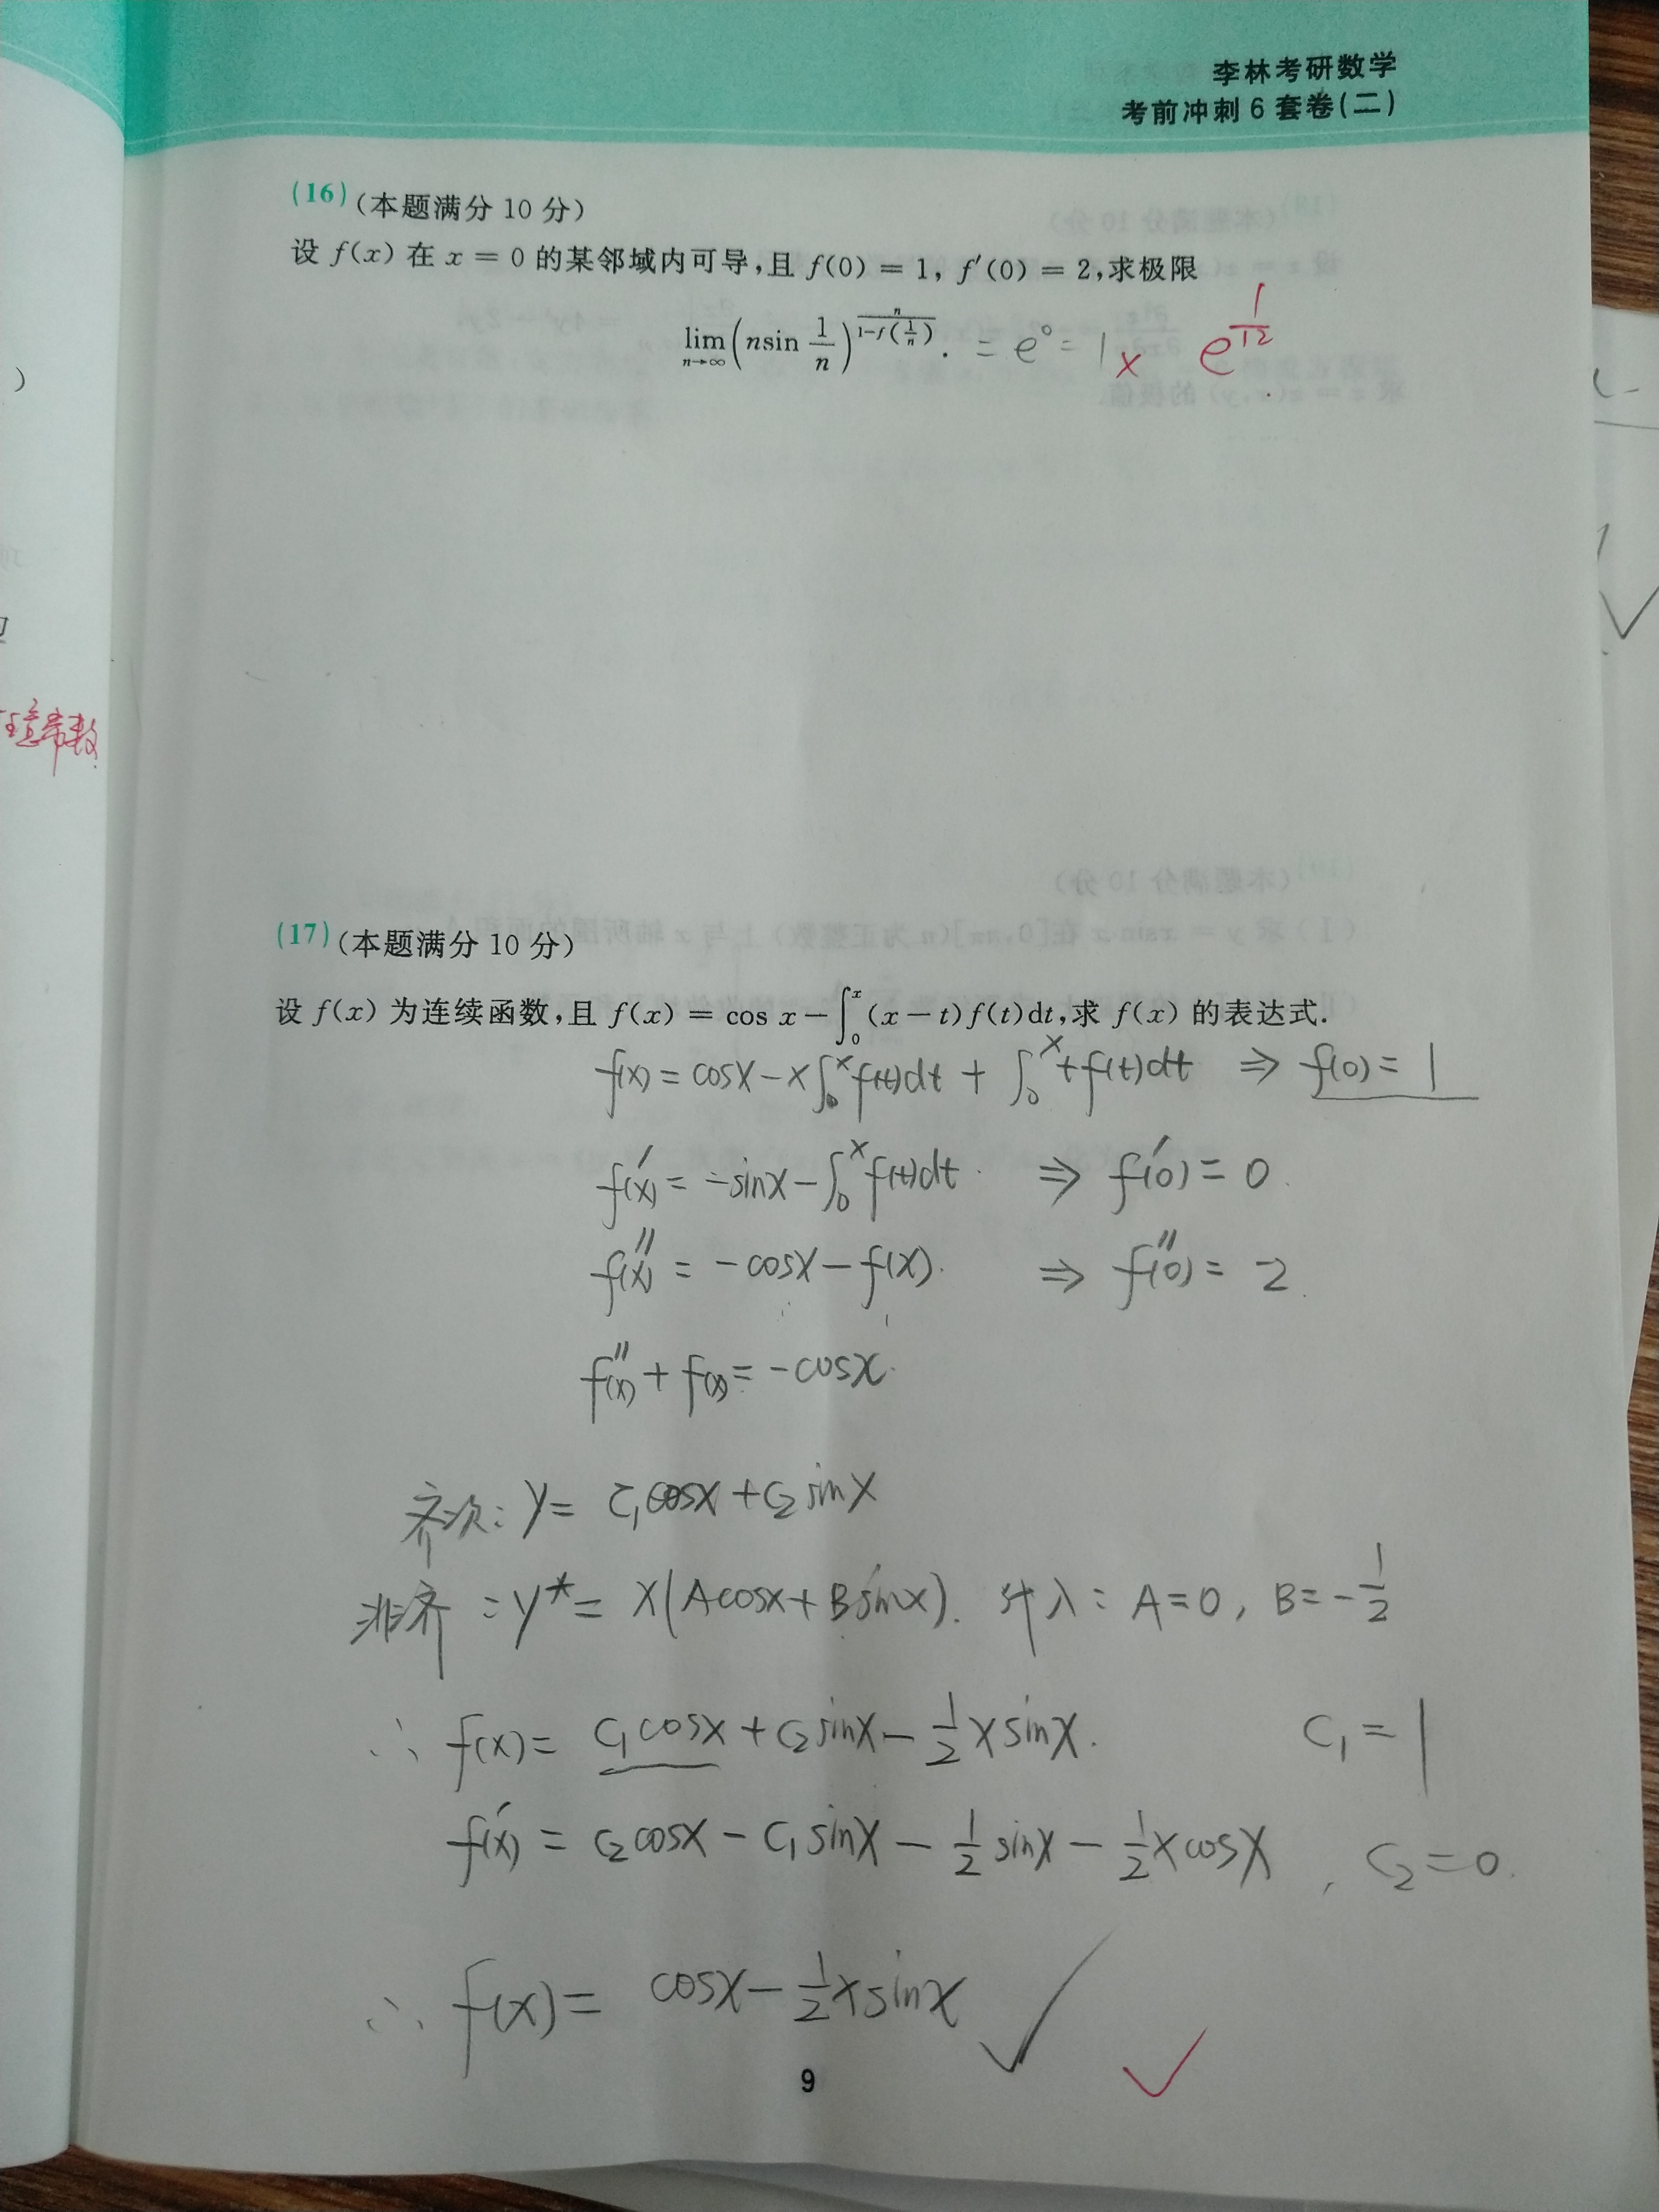 李林考研数学
考前冲刺6套卷(二)
(16)(本题满分10分)
设 f(x) 在 x = 0 的某邻域内可导,且 f(0) = 1, f′(0) = 2,求极限
lim n→∞ (nsin 1/n)^(n/(1-f(1/n))). = e⁰ = 1 × e^(1/12)
(17)(本题满分10分)
设 f(x) 为连续函数,且 f(x) = cos x − ∫₀ˣ (x−t)f(t)dt,求 f(x) 的表达式.
f(x) = cosx − x∫₀ˣ f(t)dt + ∫₀ˣ tf(t)dt ⇒ f(0) = 1
f′(x) = −sinx − ∫₀ˣ f(t)dt. ⇒ f′(0) = 0.
f″(x) = −cosx − f(x). ⇒ f″(0) = −2.
f″(x) + f(x) = −cosx.
齐次: y = C₁cosx + C₂sinx
非齐: y* = x(Acosx + Bsinx). 代入: A=0, B=−1/2
∴ f(x) = C₁cosx + C₂sinx − 1/2 xsinx. C₁ = 1
f′(x) = C₂cosx − C₁sinx − 1/2 sinx − 1/2 xcosx, C₂ = 0.
∴ f(x) = cosx − 1/2 xsinx ✓ ✓
9